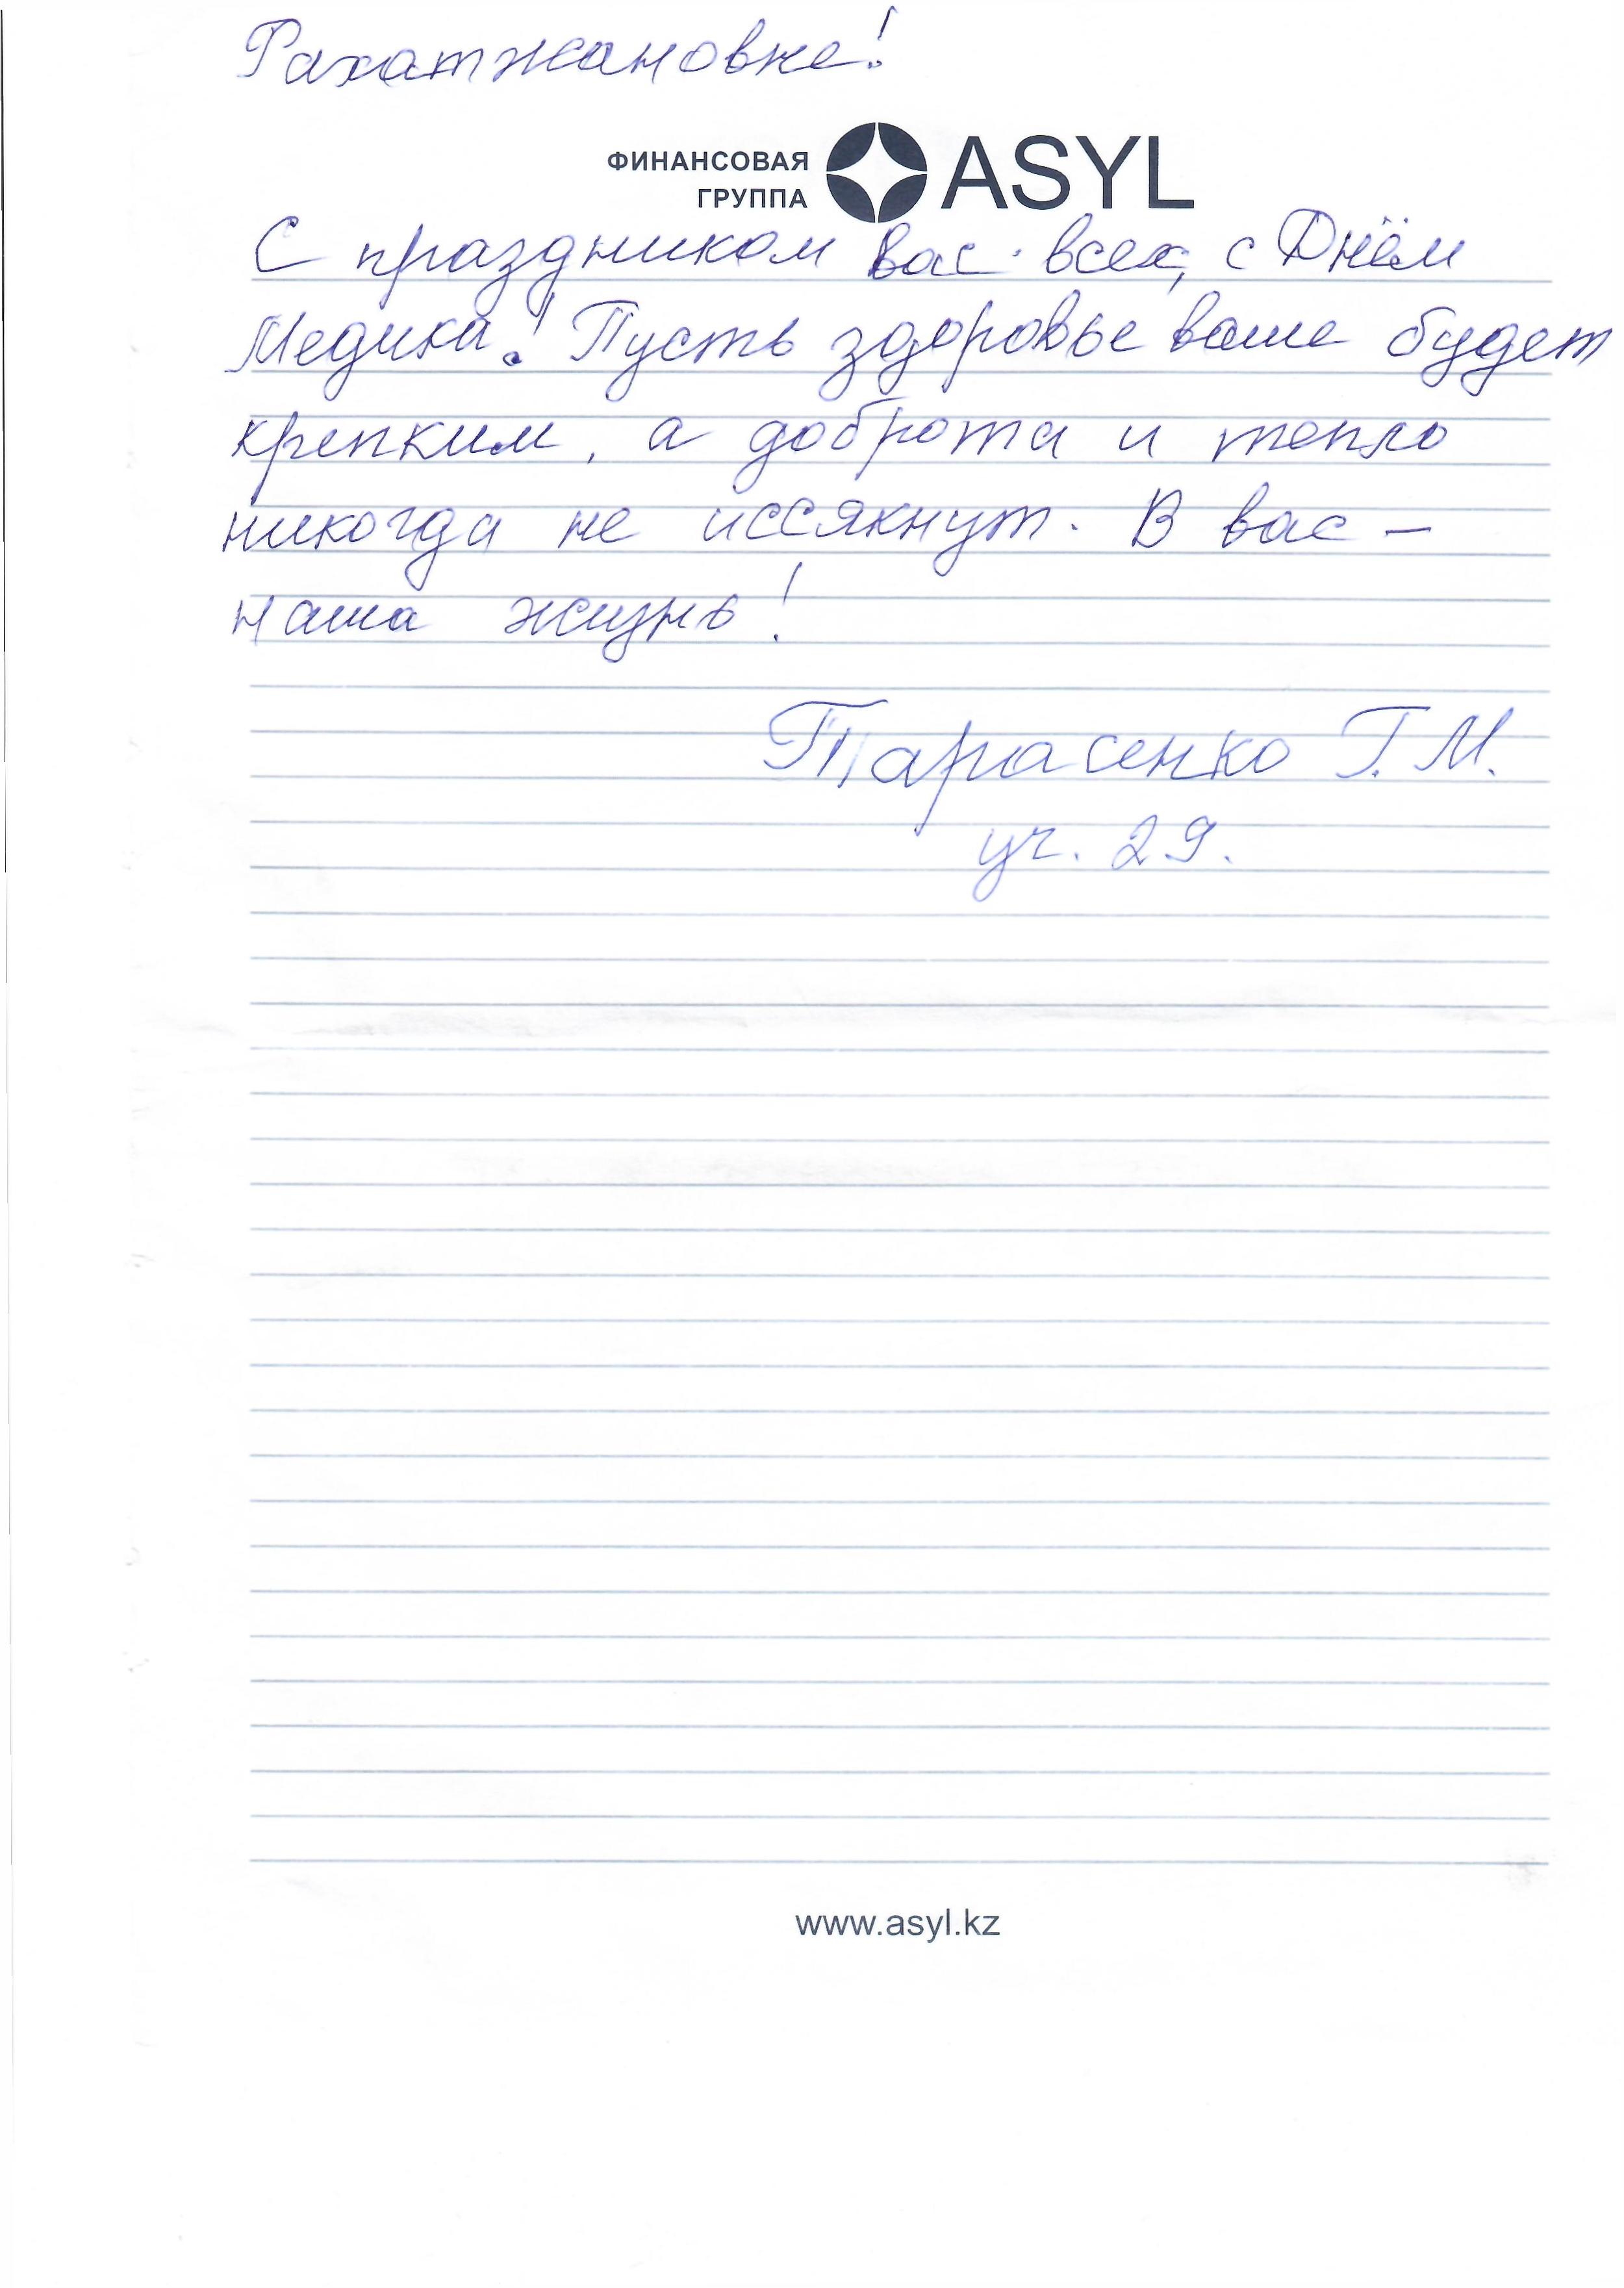 Рахатжановне!
ФИНАНСОВАЯ
ГРУППА
ASYL
С праздником вас всех, с Днём
Медика! Пусть здоровье ваше будет
крепким, а доброта и тепло
никогда не иссякнут. В вас –
наша жизнь!
Тарасенко Г. М.
уч. 29.
www.asyl.kz